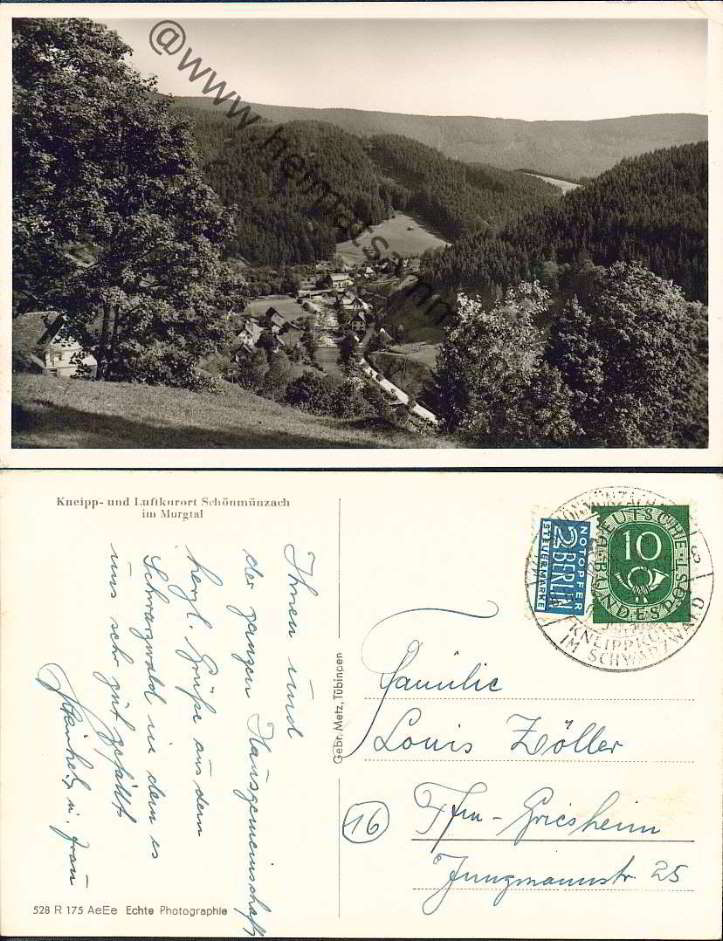 @www.heimatsammlung.de
Kneipp- und Luftkurort Schönmünzach
im Murgtal
Ihnen und
der ganzen Hausgemeinschaft
herzl. Grüße aus dem
Schwarzwald in dem es
uns sehr gut gefällt
u. Frau
528 R 175 AeEe Echte Photographie
Gebr. Metz, Tübingen
NOTOPFER
2 BERLIN
STEUERMARKE
DEUTSCHE
BUNDESPOST
10
KNEIPPKURORT
IM SCHWARZWALD
Familie
Louis Zöller
16
Ffm-Griesheim
Jungmannstr 25